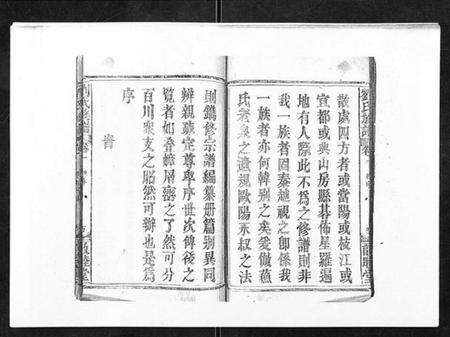 散處四方者或當陽或枝江或
宜都或興山房縣碁佈星羅遍
地有人際此不為之修譜則非
我一族者固秦越視之即係我
一族者亦何韓別之矣爰倣蘓
氏老泉之遺規歐陽永叔之法
則鐫修宗譜編纂册篇別異同
辨親疎定尊卑序世次俾後之
覽者如春蟾層密之了然可分
百川衆支之昭然可辨也是為
序